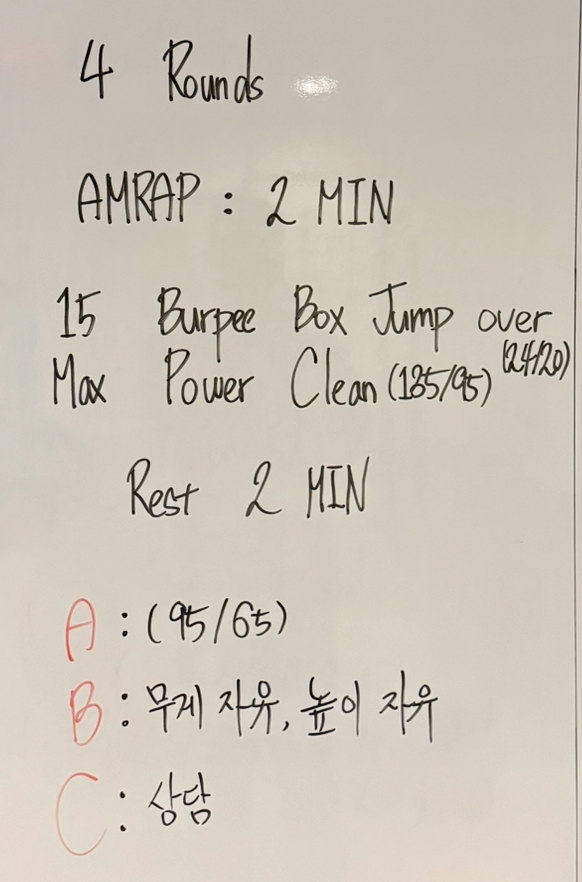 4 Rounds
AMRAP : 2 MIN
15 Burpee Box Jump over (24/20)
Max Power Clean (135/95)
Rest 2 MIN
A : (95/65)
B : 무게 자유, 높이 자유
C : 상담